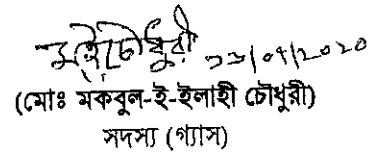 ২১/০৭/২০২০
(মোঃ মকবুল-ই-ইলাহী চৌধুরী)
সদস্য (গ্যাস)